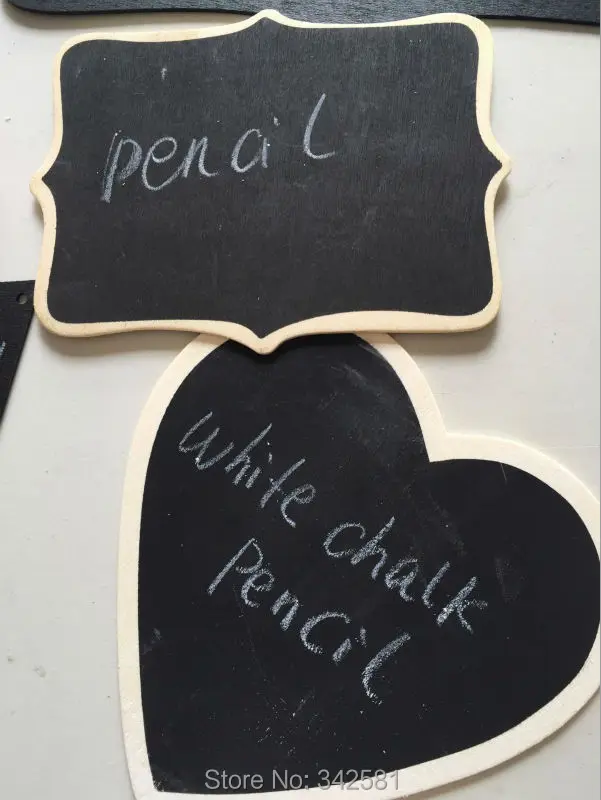 pencil
white chalk
pencil
Store No: 342581